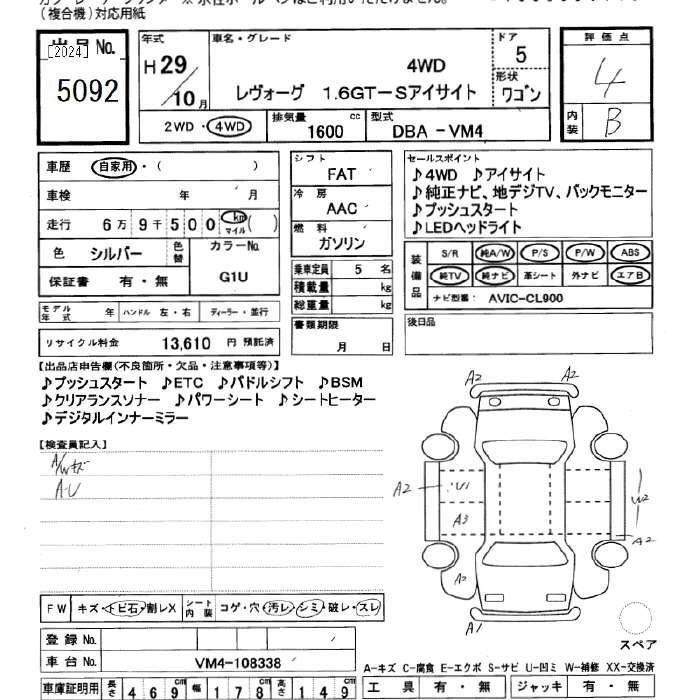 (複合機)対応用紙
出品No.
[2024]
5092
年式
H 29/10月
車名・グレード
4WD
レヴォーグ 1.6GT-Sアイサイト
ドア
5
形状
ワゴン
評価点
4
内装
B
2WD・4WD
排気量
1600 cc
型式
DBA-VM4
車歴 自家用・( )
車検 年 月
走行 6万9千500 km マイル ( )
色 シルバー 色替
カラーNo.
G1U
保証書 有・無
シフト
FAT
冷房
AAC
燃料
ガソリン
乗車定員 5 名
積載量 kg
総重量 kg
セールスポイント
♪4WD ♪アイサイト
♪純正ナビ、地デジTV、バックモニター
♪プッシュスタート
♪LEDヘッドライト
装備品
S/R 純A/W P/S P/W ABS
純TV 純ナビ 革シート 外ナビ エアB
ナビ型番: AVIC-CL900
モデル年式 年 ハンドル 左・右 ディーラー・並行
書類期限
月 日
後日品
リサイクル料金 13,610 円 預託済
【出品店申告欄(不良箇所・欠品・注意事項等)】
♪プッシュスタート ♪ETC ♪パドルシフト ♪BSM
♪クリアランスソナー ♪パワーシート ♪シートヒーター
♪デジタルインナーミラー
【検査員記入】
A/Wキズ
A-U
A2 A2
A2 U1 W2
A3
A2
A2
A1
スペア
FW キズ・トビ石・割レX シート内装 コゲ・穴・汚レ・シミ・破レ・スレ
登録No.
車台No. VM4-108338
A-キズ C-腐食 E-エクボ S-サビ U-凹ミ W-補修 XX-交換済
車庫証明用 長さ 469 cm 幅 178 cm 高さ 149 cm
工具 有・無 ジャッキ 有・無